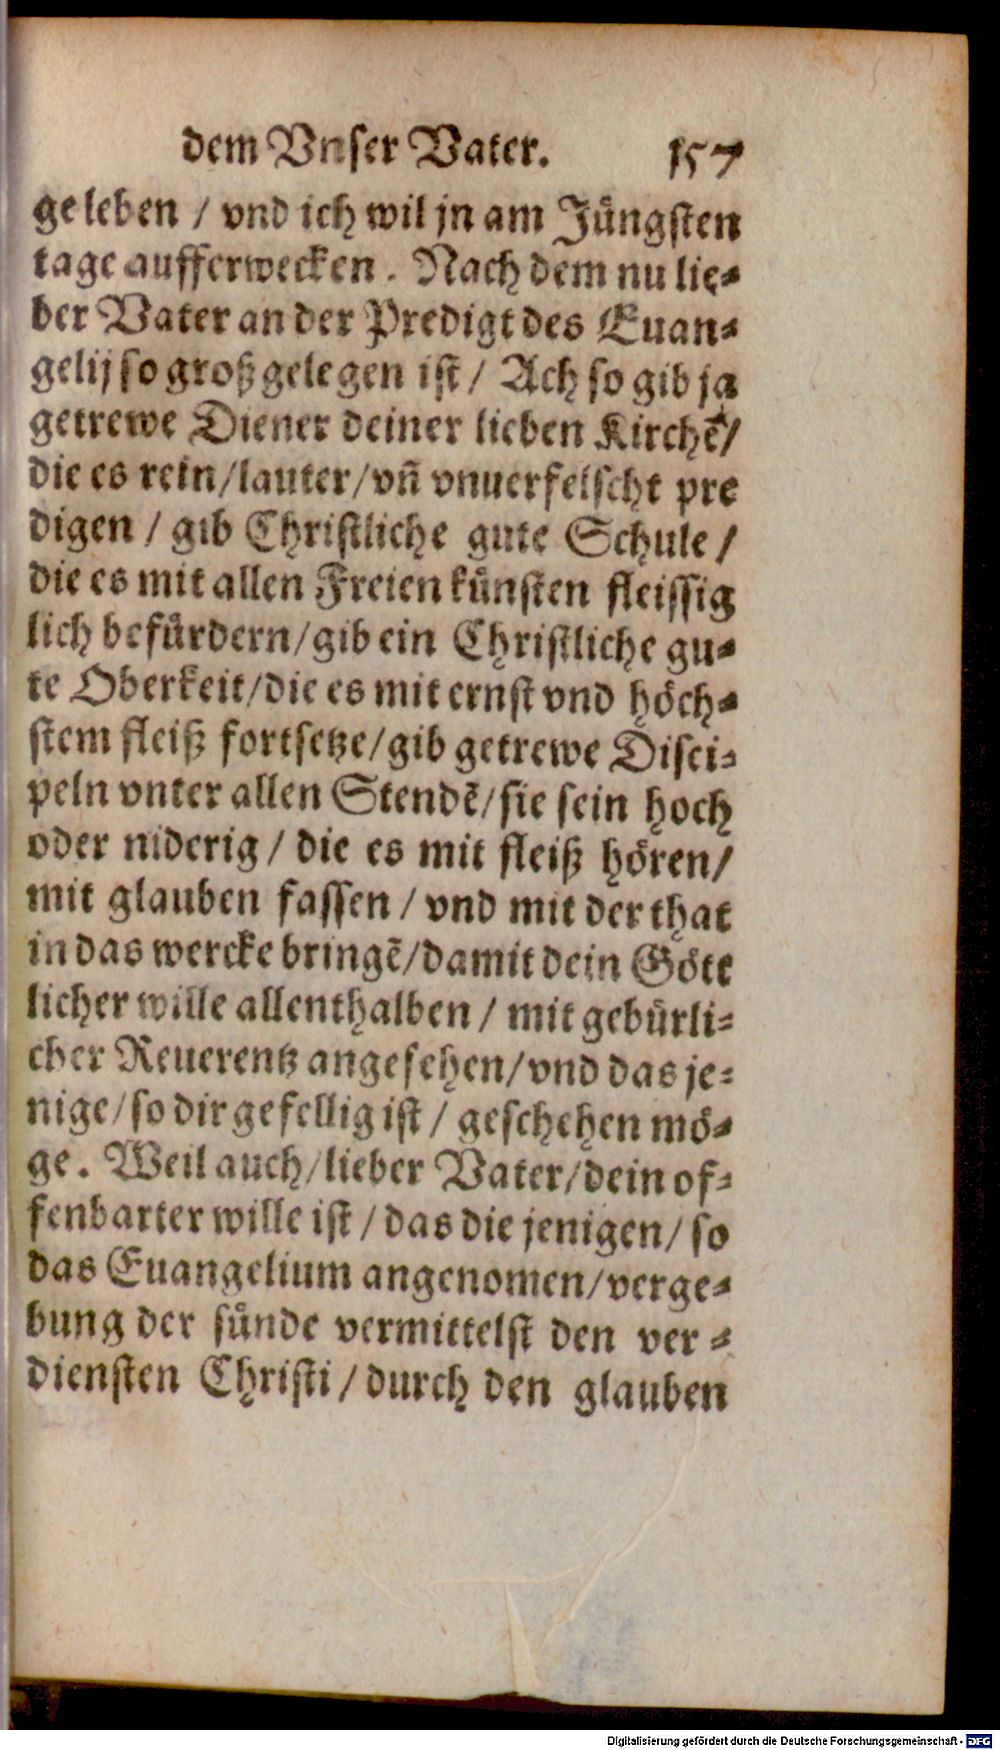 dem Vnser Vater. 157
ge leben / vnd ich wil jn am Jüngsten
tage aufferwecken. Nach dem nu lie-
ber Vater an der Predigt des Euan-
gelij so groß gelegen ist / Ach so gib ja
getrewe Diener deiner lieben Kirchẽ/
die es rein/lauter/vñ vnuerfelscht pre
digen / gib Christliche gute Schule /
die es mit allen Freien künsten fleissig
lich befürdern/gib ein Christliche gu-
te Oberkeit/die es mit ernst vnd höch-
stem fleiß fortsetze/gib getrewe Disci-
peln vnter allen Stendẽ/sie sein hoch
oder niderig / die es mit fleiß hören/
mit glauben fassen / vnd mit der that
in das wercke bringẽ/damit dein Gött
licher wille allenthalben / mit gebürli-
cher Reuerentz angesehen/vnd das je-
nige/so dir gefellig ist / geschehen mö-
ge. Weil auch/lieber Vater/dein of-
fenbarter wille ist / das die jenigen/ so
das Euangelium angenomen/verge-
bung der sünde vermittelst den ver-
diensten Christi / durch den glauben
Digitalisierung gefördert durch die Deutsche Forschungsgemeinschaft - DFG